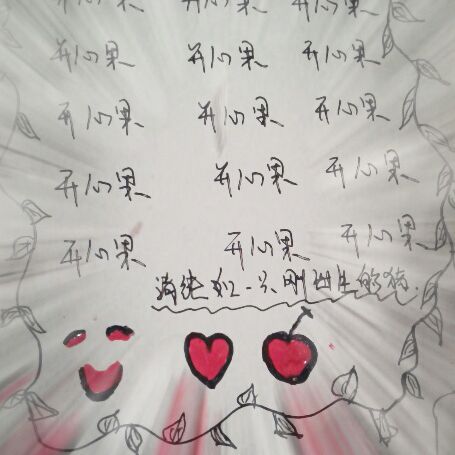 开心果 开心果 开心果
开心果 开心果 开心果
开心果 开心果 开心果
开心果 开心果 开心果
开心果 开心果 开心果
清纯如一只刚出生的猪.